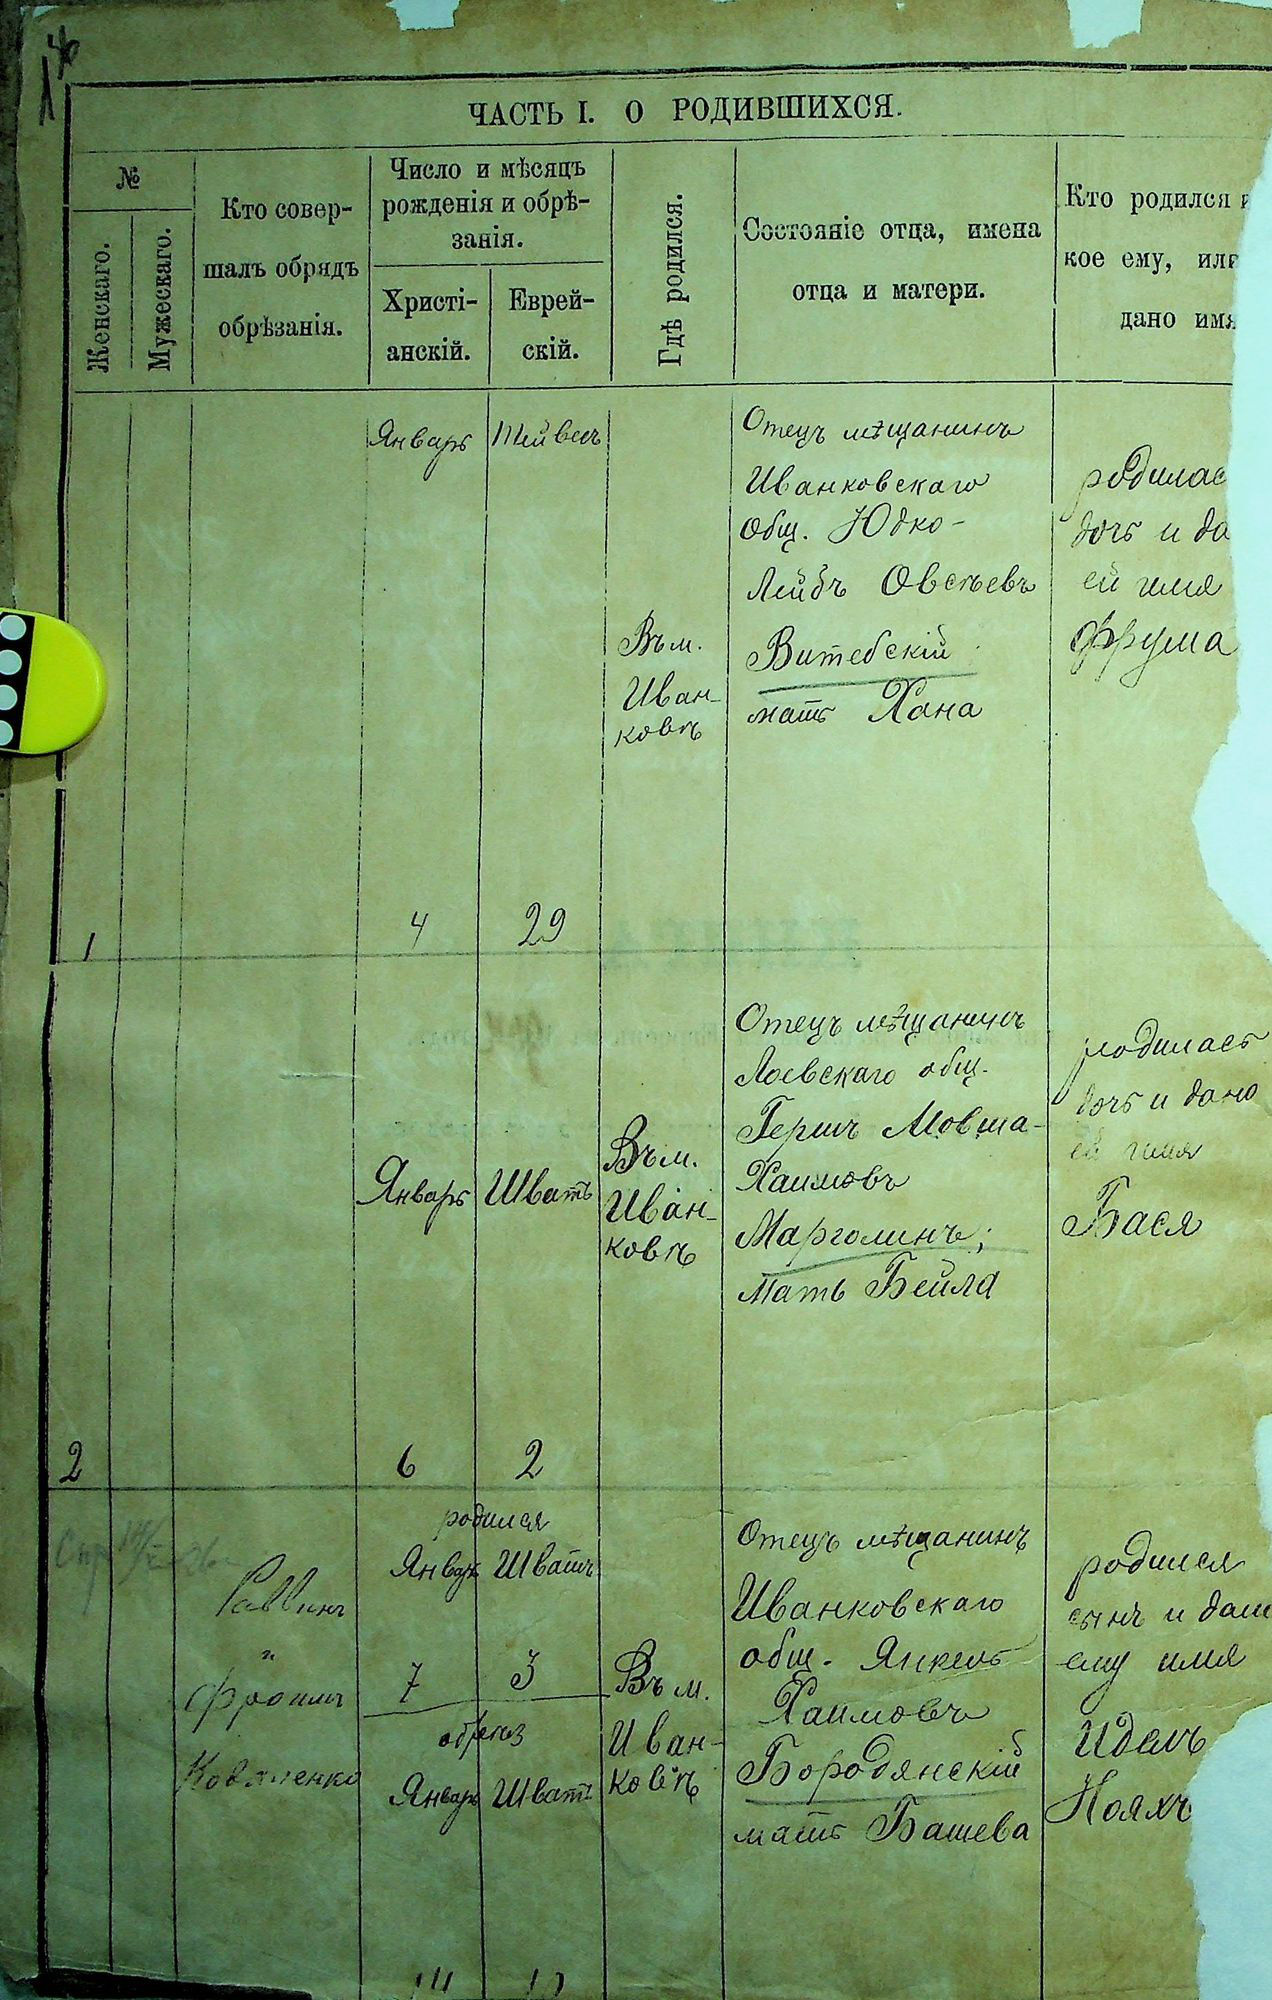 ЧАСТЬ I. О РОДИВШИХСЯ.
№
Женскаго.
Мужескаго.
Кто совер-
шалъ обрядъ
обрѣзанія.
Число и мѣсяцъ
рожденія и обрѣ-
занія.
Христі-
анскій.
Еврей-
скій.
Гдѣ родился.
Состояніе отца, имена
отца и матери.
Кто родился и
кое ему, или
дано имя
1
Январь
4
Тейвесъ
29
Въ м.
Иван-
ковѣ
Отецъ мѣщанинъ
Иванковскаго
общ. Юдко-
Лейбъ Овсѣевъ
Витебскій
мать Хана
родилас
дочь и да
ей имя
Фрума
2
Январь
6
Шватъ
2
Въ м.
Иван-
ковѣ
Отецъ мѣщанинъ
Лоевскаго общ.
Гершъ Мовша-
Хаимовъ
Марголинъ;
Мать Бейла
родилась
дочь и дано
ей имя
Бася
Раввинъ
"
Фроимъ
Коваленко
родился
Январь Шватъ
7 3
обрѣз
Январь Шватъ
Въ м.
Иван-
ковѣ
Отецъ мѣщанинъ
Иванковскаго
общ. Янкель
Хаимовъ
Бородянскій
мать Башева
родился
сынъ и дан
ему имя
Идель
Нояхъ